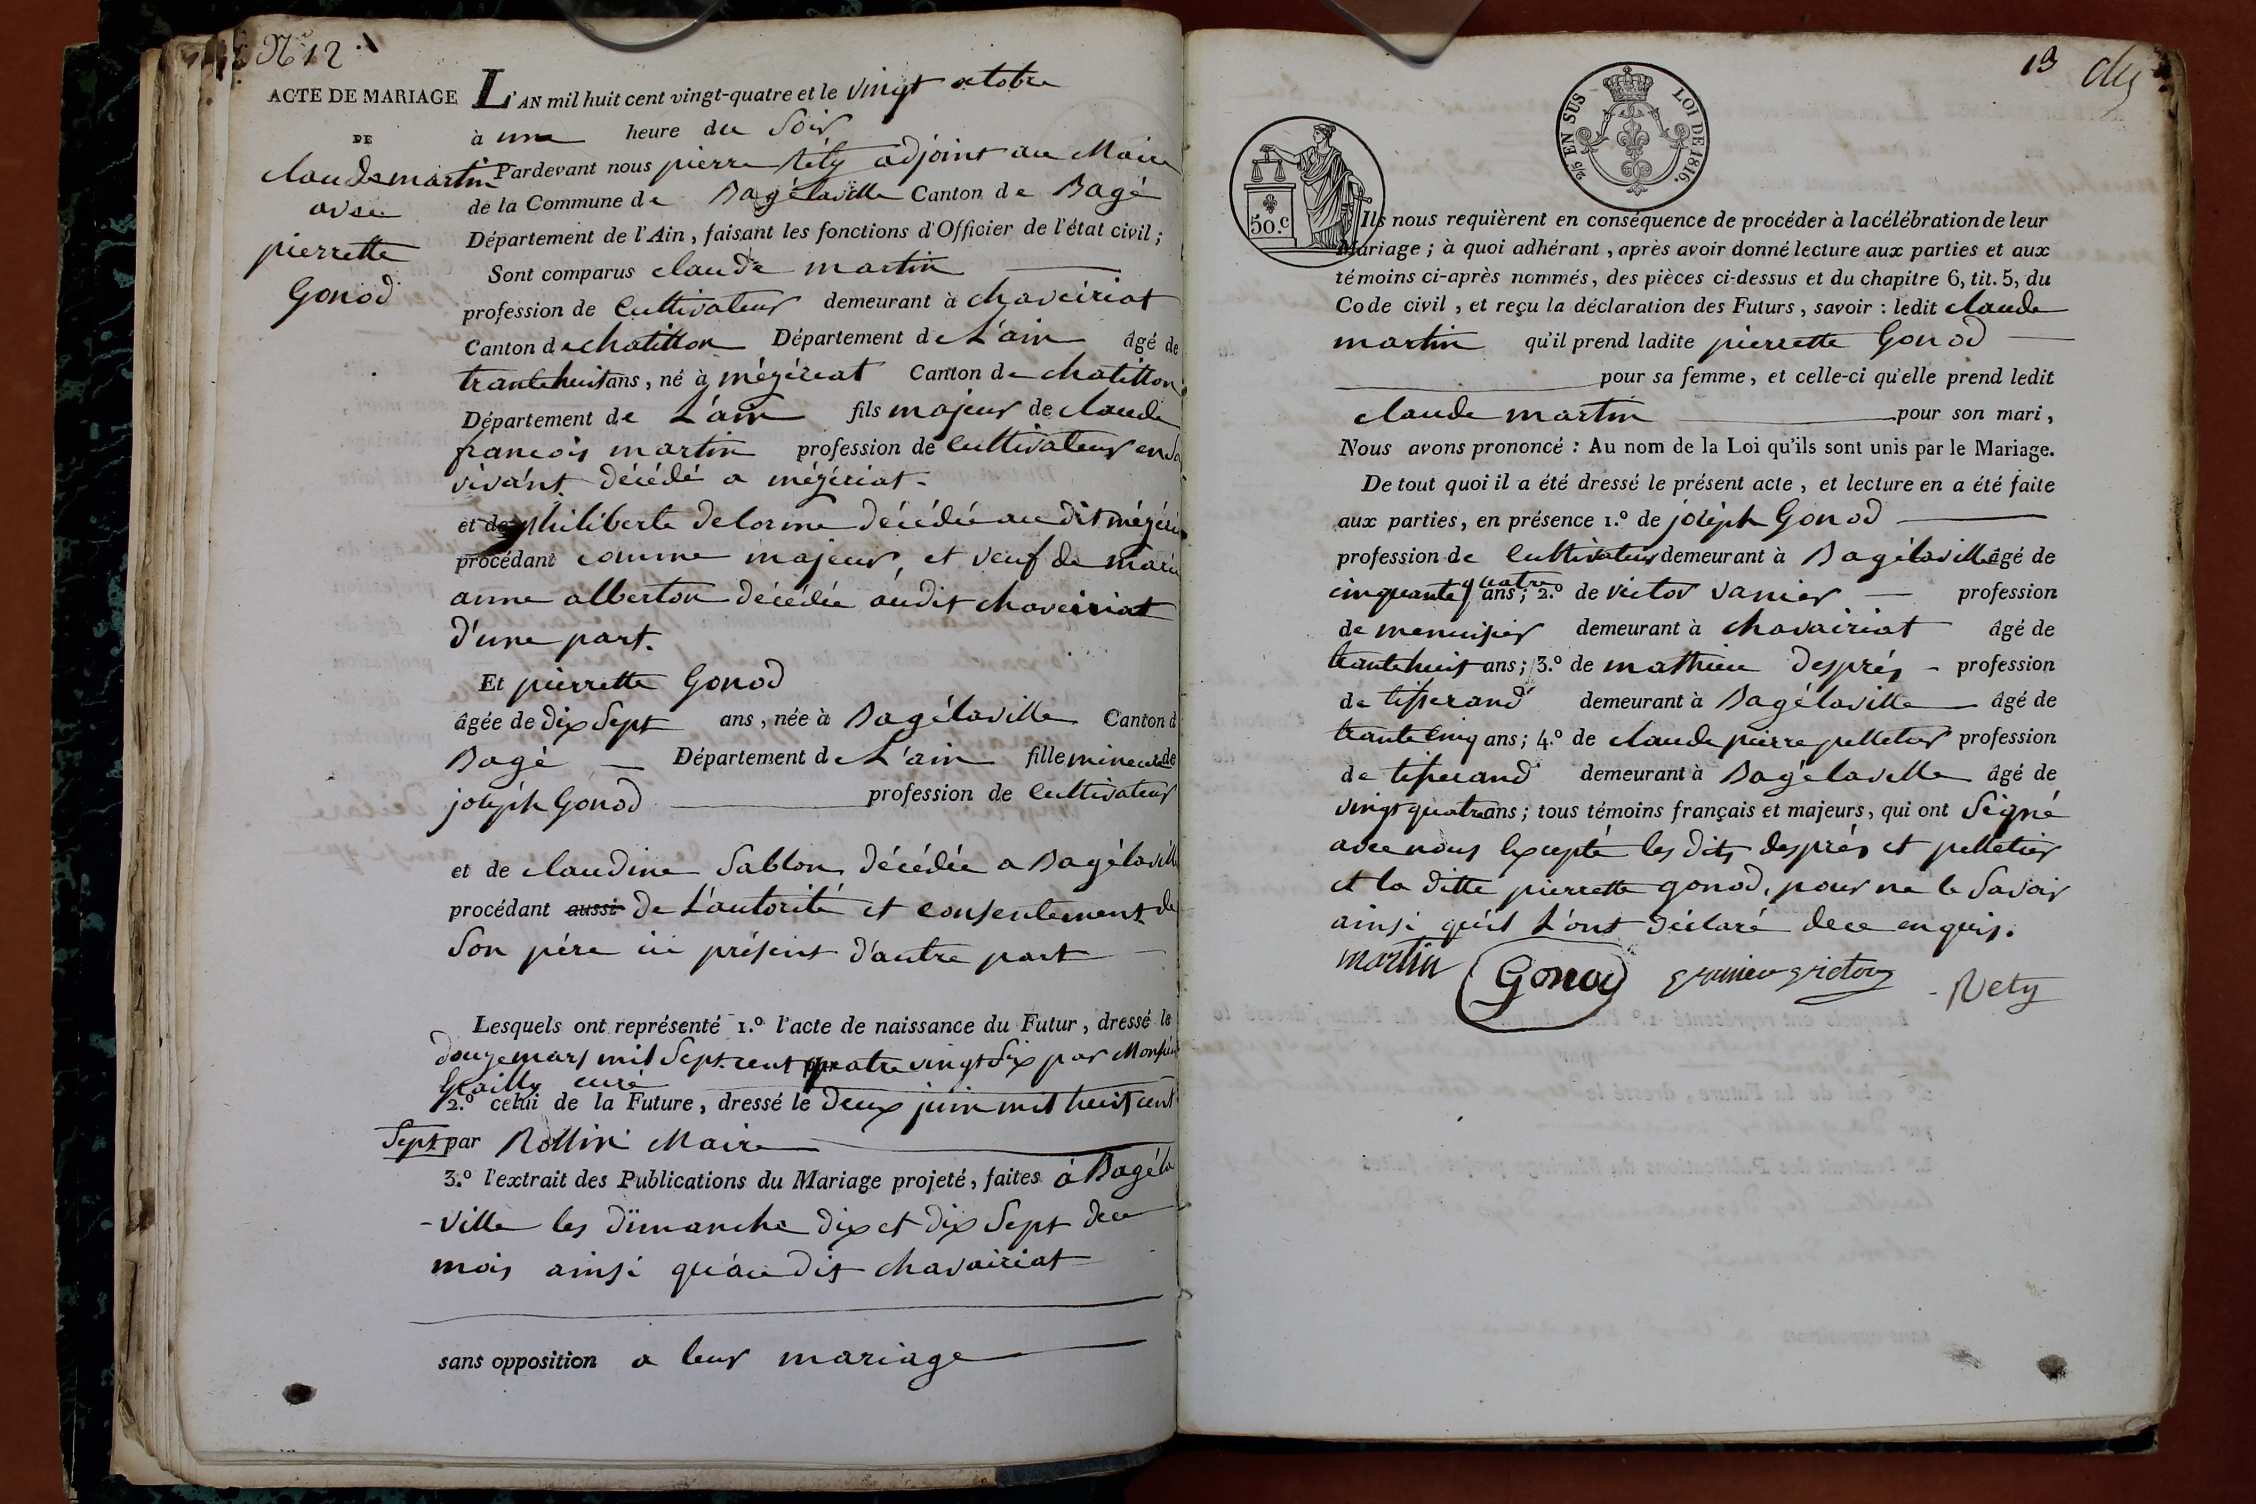 N° 12
ACTE DE MARIAGE
DE
claude martin
avec
pierrette
Gonod
L'AN mil huit cent vingt-quatre et le vingt octobre
à une heure du Soir
Pardevant nous pierre Néty adjoint au Maire
de la Commune de Bagélaville Canton de Bagé
Département de l'Ain, faisant les fonctions d'Officier de l'état civil;
Sont comparus claude martin
profession de Cultivateur demeurant à chaveiriat
Canton de chatillon Département de L'ain âgé de
trante huit ans, né à mézériat Canton de chatillon
Département de L'ain fils majeur de claude
francois martin profession de Cultivateur en So
vivant décédé a mézériat
et de philiberte delorme décédée au dit mézéri
procédant comme majeur, et veuf de marie
anne alberton décédée audit chaveiriat
d'une part.
Et pierrette Gonod
âgée de dix Sept ans, née à Bagélaville Canton d
Bagé Département de L'ain fille mineure de
joseph Gonod profession de Cultivateur
et de claudine Sablon décédée a Bagélaville
procédant aussi de L'autorité et consentement de
Son pére ici présent d'autre part
Lesquels ont représenté 1.º l'acte de naissance du Futur, dressé le
douze mars mil Sept cent quatre vingt Six par Monsieur
Grailly curé
2.º celui de la Future, dressé le deux juin mil huit cent
Sept par Rollin Maire
3.º l'extrait des Publications du Mariage projeté, faites à Bagéla
-ville les dimanche dix et dix Sept de ce
mois ainsi qu'au dit chavairiat
sans opposition a leur mariage
13
% EN SUS LOI DE 1816.
50.c
Ils nous requièrent en conséquence de procéder à la célébration de leur
Mariage; à quoi adhérant, après avoir donné lecture aux parties et aux
témoins ci-après nommés, des pièces ci-dessus et du chapitre 6, tit. 5, du
Code civil, et reçu la déclaration des Futurs, savoir: ledit claude
martin qu'il prend ladite pierrette Gonod
pour sa femme, et celle-ci qu'elle prend ledit
claude martin pour son mari,
Nous avons prononcé: Au nom de la Loi qu'ils sont unis par le Mariage.
De tout quoi il a été dressé le présent acte, et lecture en a été faite
aux parties, en présence 1.º de joseph Gonod
profession de Cultivateur demeurant à Bagélaville âgé de
cinquante quatre ans; 2.º de victor vanier profession
de menuisier demeurant à chavairiat âgé de
trante huit ans; 3.º de mathieu després profession
de tisserand demeurant à Bagélaville âgé de
trante cinq ans; 4.º de claude pierre pelletier profession
de tisserand demeurant à Bagélaville âgé de
vingt quatre ans; tous témoins français et majeurs, qui ont Signé
avec nous Excepté les dits després et pelletier
et la ditte pierrette gonod, pour ne le Savoir
ainsi qu'il L'ont déclaré de ce enquis.
martin Gonod victor Nety